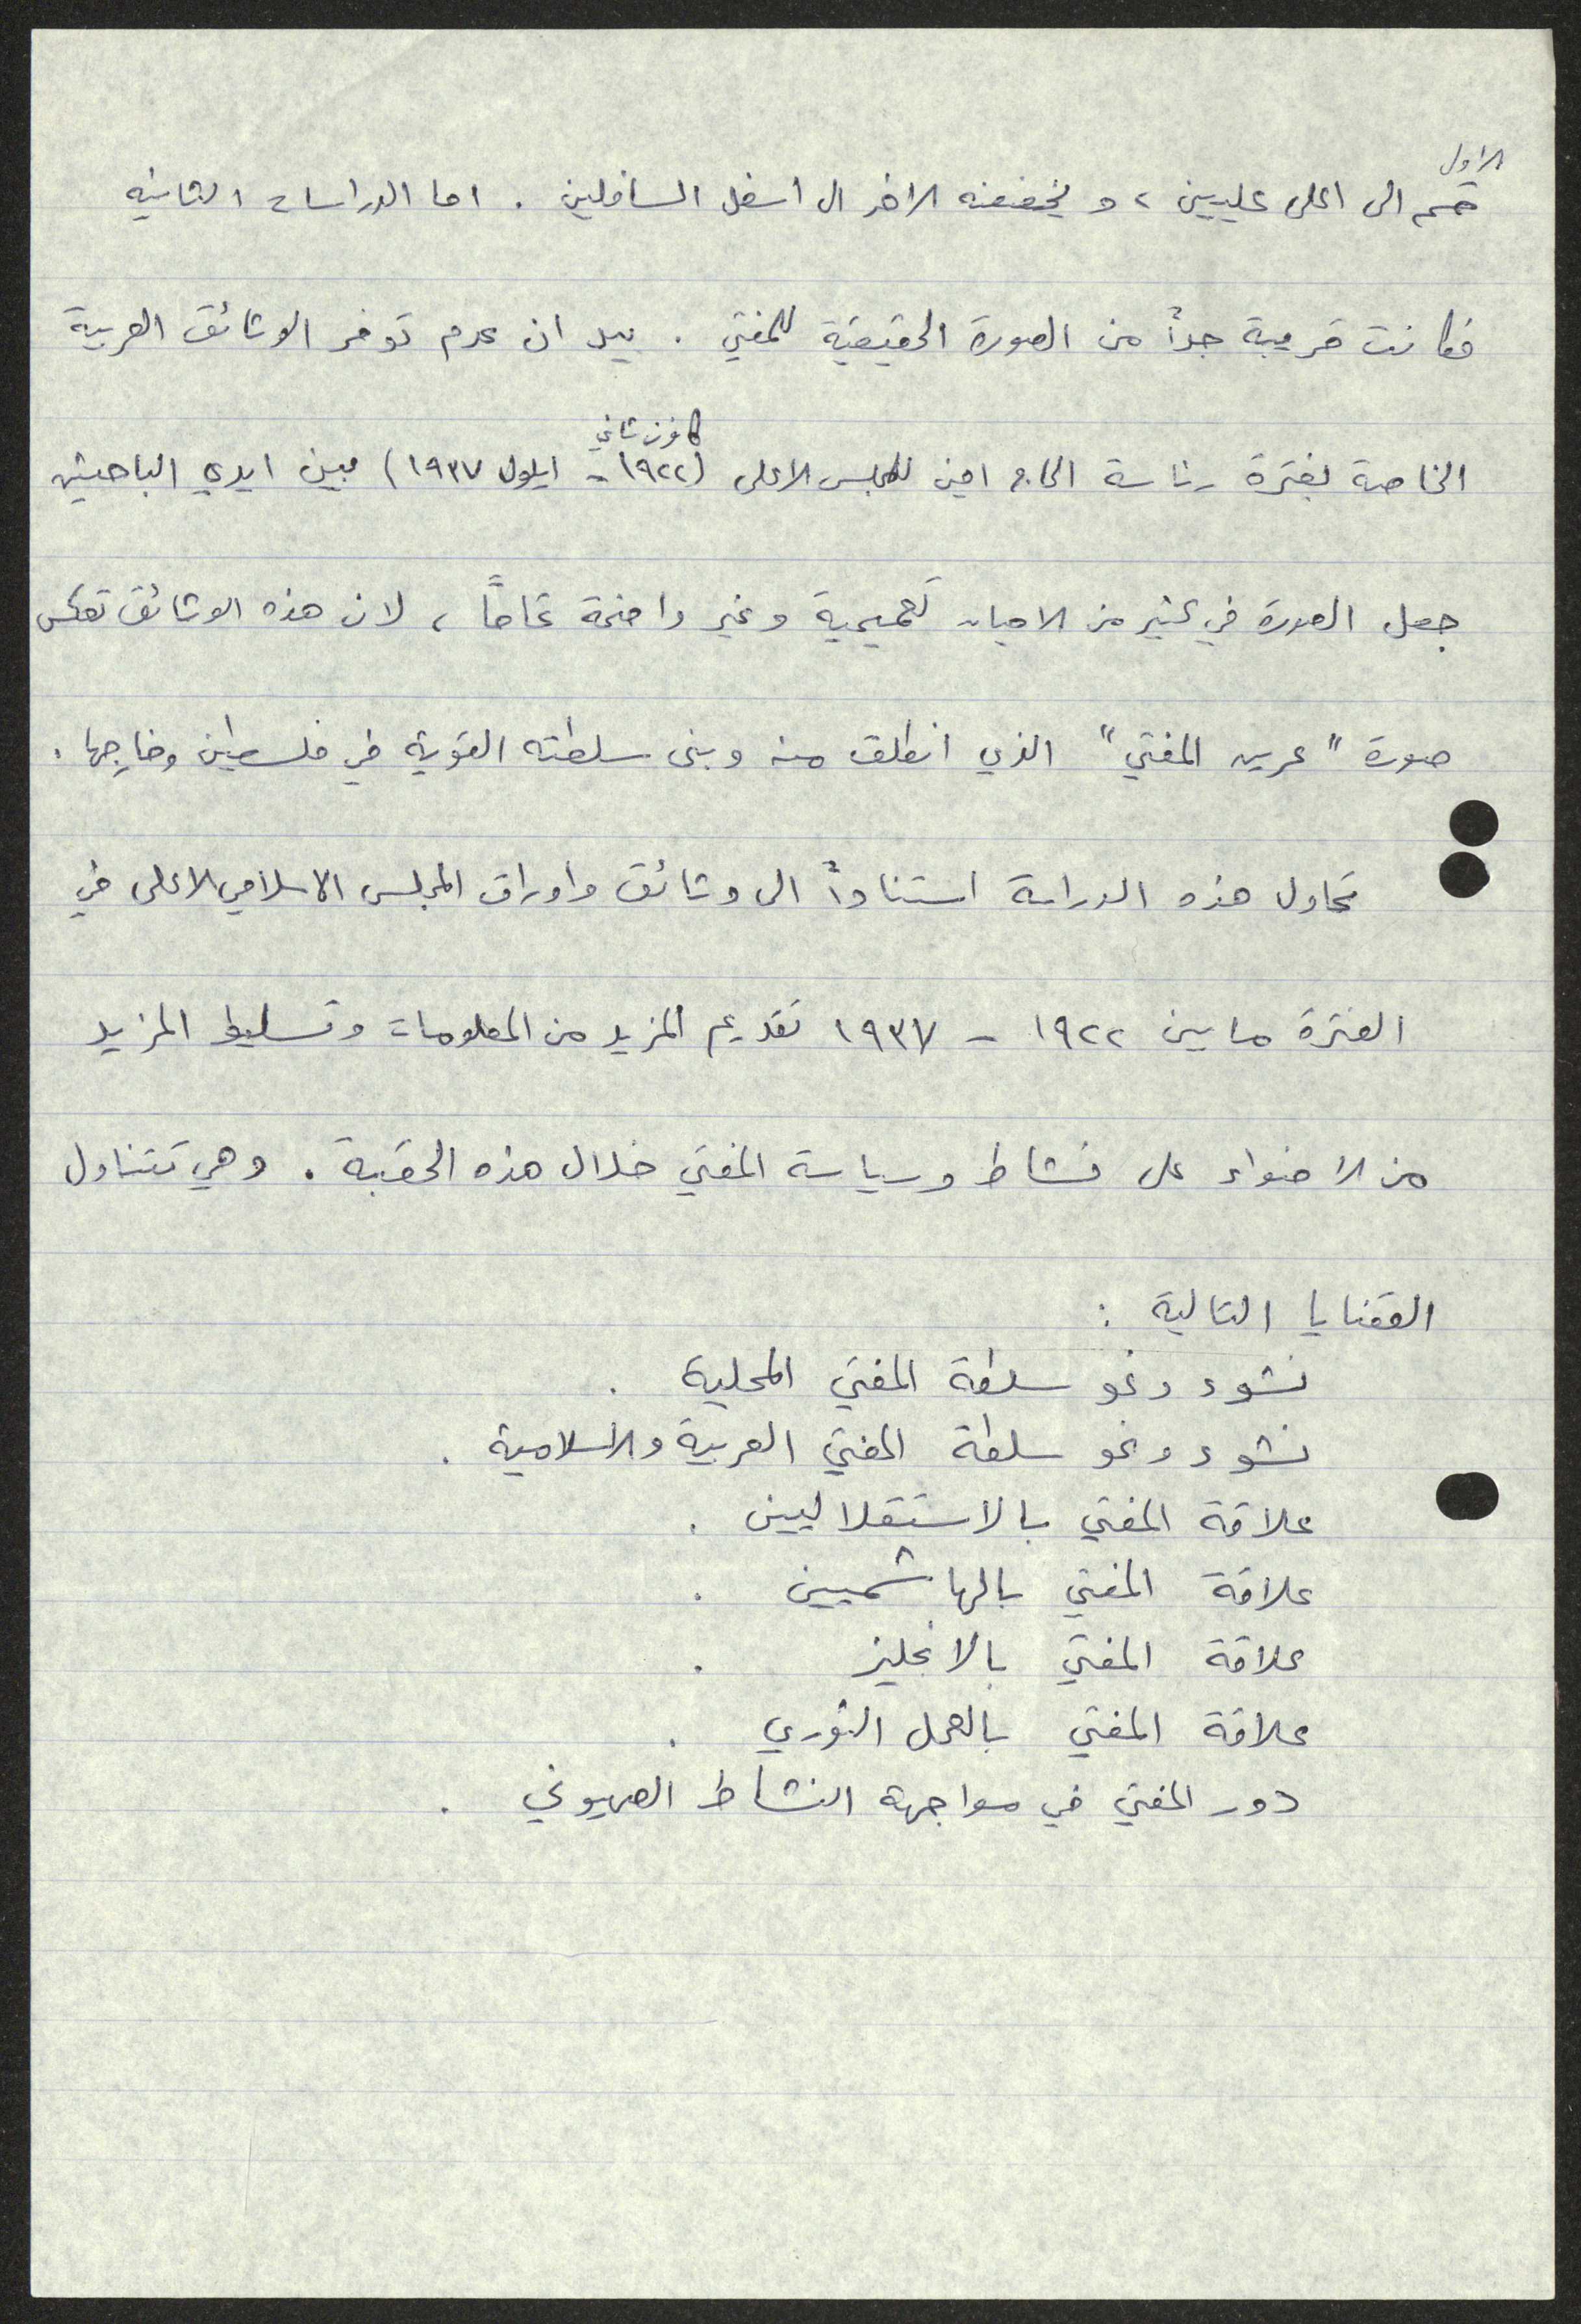 الاول
قسم الى اعلى عليين، ويخفضه الاخر الى اسفل السافلين. اما الدراسات الثانيه
فكانت قريبة جداً من الصورة الحقيقية للمفتي. بيد ان عدم توفر الوثائق العربية
كانون ثاني
الخاصة بفترة رئاسة الحاج امين للمجلس الاعلى (١٩٢٢ - ايلول ١٩٣٧) بين ايدي الباحثين
جعل الصورة في كثير من الاحيان تعميمية وغير واضحة تماماً، لان هذه الوثائق تعكس
صورة "عرين المفتي" الذي انطلق منه وبنى سلطته القوية في فلسطين وخارجها.
تحاول هذه الدراسة استناداً الى وثائق واوراق المجلس الاسلامي الاعلى في
الفترة ما بين ١٩٢٢ - ١٩٣٧ تقديم المزيد من المعلومات وتسليط المزيد
من الاضواء على نشاط وسياسة المفتي خلال هذه الحقبة. وهي تتناول
القضايا التالية :
نشوء ونمو سلطة المفتي المحلية .
نشوء ونمو سلطة المفتي العربية والاسلامية .
علاقة المفتي بالاستقلاليين .
علاقة المفتي بالهاشميين .
علاقة المفتي بالانجليز .
علاقة المفتي بالعمل الثوري .
دور المفتي في مواجهة النشاط الصهيوني .